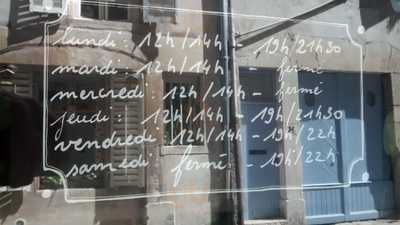 lundi : 12h/14h - 19h/21h30
mardi : 12h/14h fermé
mercredi : 12h/14h - fermé
jeudi : 12h/14h - 19h/21h30
vendredi 12h/14h - 19h/22h
samedi fermé - 19h/22h